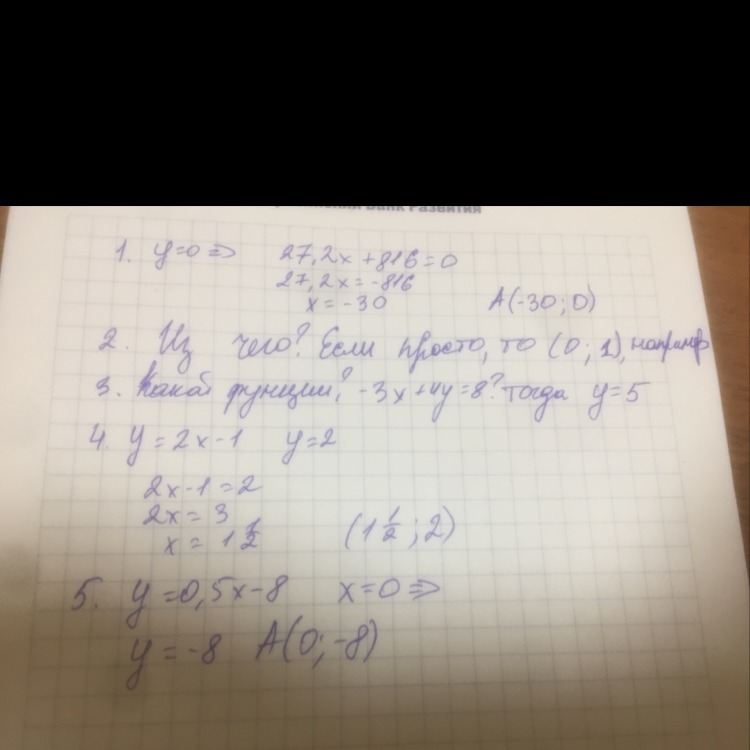 Банк Развития
1. y=0 ⇒ 27,2x+816=0
27,2x=-816
x=-30 A(-30;0)
2. Из чего? Если просто, то (0;1), наприм
3. Какой функции? -3x+4y=8? тогда y=5
4. y=2x-1 y=2
2x-1=2
2x=3
x=1 1/2 (1 1/2;2)
5. y=0,5x-8 x=0 ⇒
y=-8 A(0;-8)